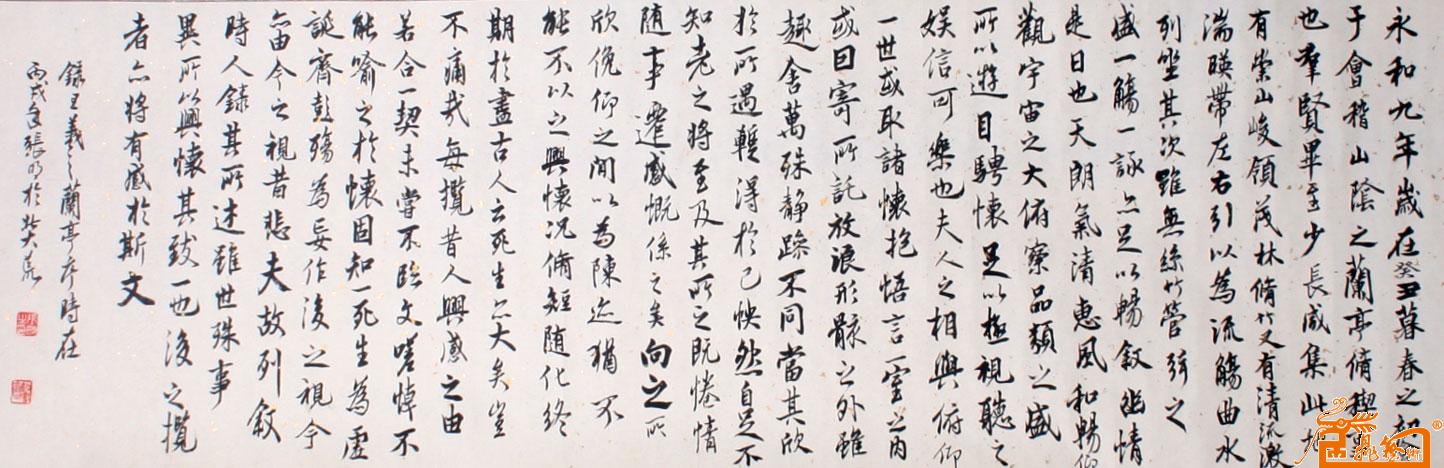 永和九年歲在癸丑暮春之初會
于會稽山陰之蘭亭脩稧事
也羣賢畢至少長咸集此地
有崇山峻領茂林脩竹又有清流激
湍暎帶左右引以為流觴曲水
列坐其次雖無絲竹管弦之
盛一觴一詠亦足以暢敘幽情
是日也天朗氣清惠風和暢仰
觀宇宙之大俯察品類之盛
所以遊目騁懷足以極視聽之
娱信可樂也夫人之相與俯仰
一世或取諸懷抱悟言一室之內
或因寄所託放浪形骸之外雖
趣舍萬殊静躁不同當其欣
於所遇暫得於己怏然自足不
知老之將至及其所之既惓情
随事遷感慨係之矣向之所
欣俛仰之閒以為陳迹猶不
能不以之興懷況脩短随化終
期於盡古人云死生亦大矣豈
不痛哉每攬昔人興感之由
若合一契未嘗不臨文嗟悼不
能喻之於懷固知一死生為虛
誕齊彭殤為妄作後之視今
亦由今之視昔悲夫故列敘
時人錄其所述雖世殊事
異所以興懷其致一也後之攬
者亦將有感於斯文
錄王羲之蘭亭序時在
丙戌年張